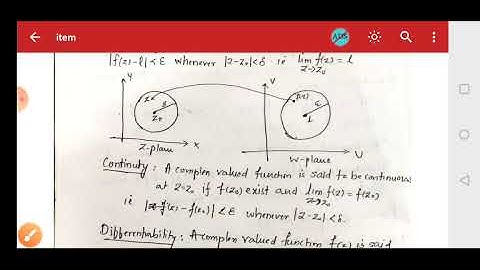 item
ADS
|f(z)-l|<ε whenever |z-z₀|<δ. ie lim f(z)=l
z→z₀
Y
V
z
δ
z₀
f(z)
ε
l
X
U
Z-plane
W-plane
Continuty: A complex valued function is said to be continuous
at z=z₀ if f(z₀) exist and lim f(z)=f(z₀)
z→z₀
ie |f(z)-f(z₀)|<ε whenever |z-z₀|<δ.
Differentiability: A complex valued function f(z) is said